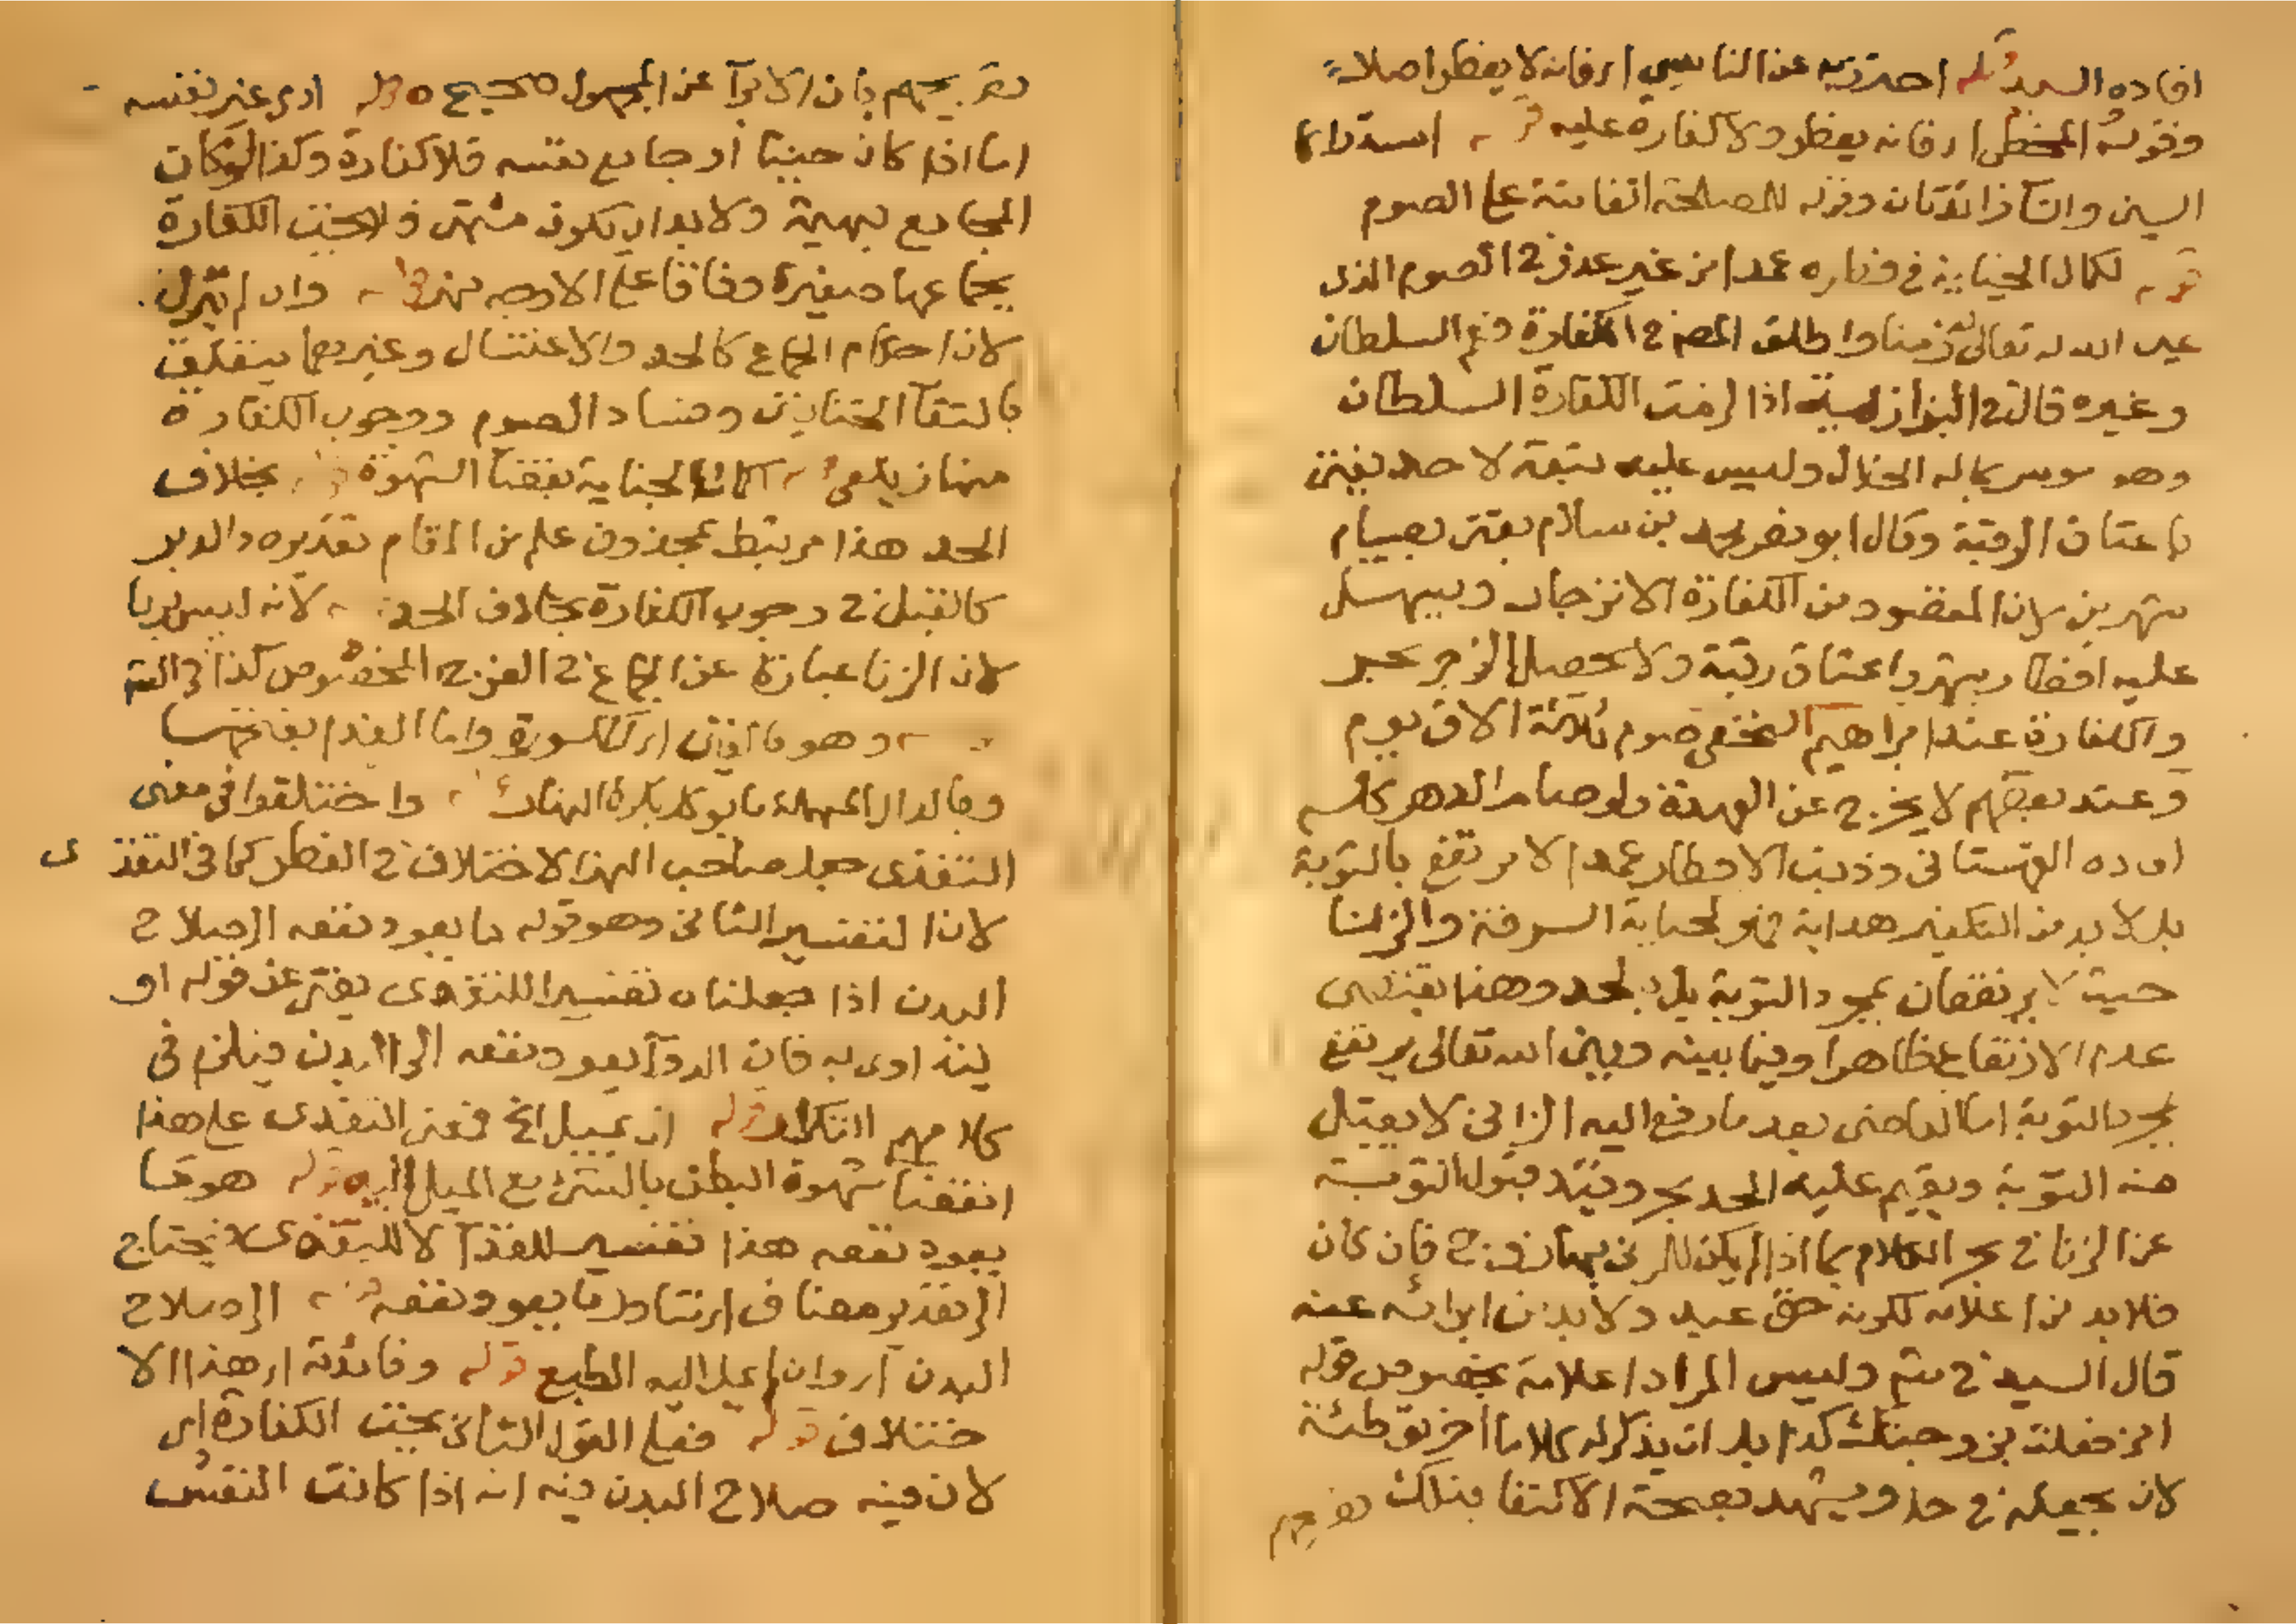 افاده السيد قوله احترز به عن الناسي اى فانه لا يفطر اصلا
وقوله المخطى اى فانه يفطر ولا كفارة عليه قوله استدراكا
السين والتا زائدتان وقوله للمصلحة الفائتة على الصوم
قوله لكمال الجناية في فطره عمدا من غير عذر في الصوم الذى
عين الله له تعالى زمنا واطلق المص في الكفارة فعم السلطان
وغيره قال في البزازية اذا لزمت الكفارة السلطان
وهو موسر بماله الحلال وليس عليه تبعة لاحد يفتى
باعتاق الرقبة وقال ابو نصر محمد بن سلام يفتى بصيام
شهرين لان المقصود من الكفارة الانزجار ويسهل
عليه افطار شهر واعتاق رقبة ولا يحصل الزجر بحر
والكفارة عند ابراهيم النخعى صوم ثلاثة الاف يوم
وعند بعضهم لا يخرج عن العهدة ولو صام الدهر كله
افاده القهستانى وذنب الافطار عمدا لا يرتفع بالتوبة
بل لا بد من التكفير هداية فهو كجناية السرقة والزنا
حيث لا يرتفعان بمجرد التوبة بل بالحد وهذا يقتضى
عدم الارتفاع ظاهرا وفيما بينه وبين الله تعالى يرتفع
بمجرد التوبة اما القاضى بعد ما رفع اليه الزانى لا يقبل
منه التوبة ويقيم عليه الحد بحر وقيد قبول التوبة
عن الزنا في بحر الكلام بما اذا لم يكن للمزنى بها زوج فان كان
فلا بد من اعلامه لكونه حق عبد ولا بد من ابرائه عنه
قال السيد في وليس المراد اعلامه بخصوص قوله
انى فعلت بزوجتك كذا بل ان يذكر له كلاما اخر توطئة
لان يجعله في حل ويشهد بصحة الاكتفا بذلك تصريحهم
تصريحهم بان الابرآ عن المجهول صحيح قوله ادمى غير نفسه
اما اذا كان جنيا او جامع نفسه فلا كفارة وكذا لو كان
المجامع بهيمة ولا بد ان يكون مشتهى فلا تجب الكفارة
بجماعها صغيرة وفاقا على الاوجه نهر قوله وان لم ينزل
لان احكام الجماع كالحد والاغتسال وغيرهما يتعلق
بالتقآ الختانين وفساد الصوم ووجوب الكفارة
منها زيلعى قوله لكمال الجناية بقضآ الشهوة بخلاف
الحد هذا مرتبط بمحذوف علم من المقام تقديره والدبر
كالقبل في وجوب الكفارة بخلاف الحد لانه ليس بزنا
لان الزنا عبارة عن الجماع في الفرج المخصوص كذا في
وهو واما الغدآ بفتحها
وبالدال المهملة ما يوكل بكرة النهار قوله واختلفوا في معنى
التغذى جعل صاحب النهر الاختلاف في الفطر كما في التغذى
لان التفسير الثانى وهو قوله ما يعود نفعه الى صلاح
البدن اذا جعلناه تفسيرا للتغذى يغنى عن قوله او
ليتداوى به فان الدوآ يعود نفعه الى البدن فيلزم في
كلامهم التكرار قوله ان يميل الخ فمعنى التغذى على هذا
انقضآ شهوة البطن بالشئ مع الميل اليه قوله هو ما
يعود نفعه هذا تفسير للغذآ لا للتغذى فيحتاج
الى تقدير مضاف اى تناول ما يعود نفعه قوله الى صلاح
البدن اى وان لم يمل اليه الطبع قوله وفائدته اى هذا الا
ختلاف قوله فعلى القول الثانى تجب الكفارة اى
لان فيه صلاح البدن فيه انه اذا كانت النفس